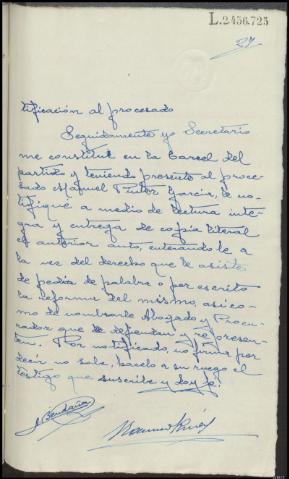 L.2456.725
27
tificación al procesado
Seguidamente yo Secretario
me constituí en la Carcel del
partido y teniendo presente al proce-
sado Manuel Garcia, le no-
tifiqué a medio de lectura inte-
gra y entrega de copia literal
el anterior auto, enterandole a
la vez del derecho que le asiste
de pedir de palabra o por escrito
la reforma del mismo, asi co-
mo de nombrar Abogado y Procu-
rador que le defiendan y represen-
ten. Por notificado, no firma por
decir no sabe, hacelo a su ruego el
testigo que suscribe y doy fé.